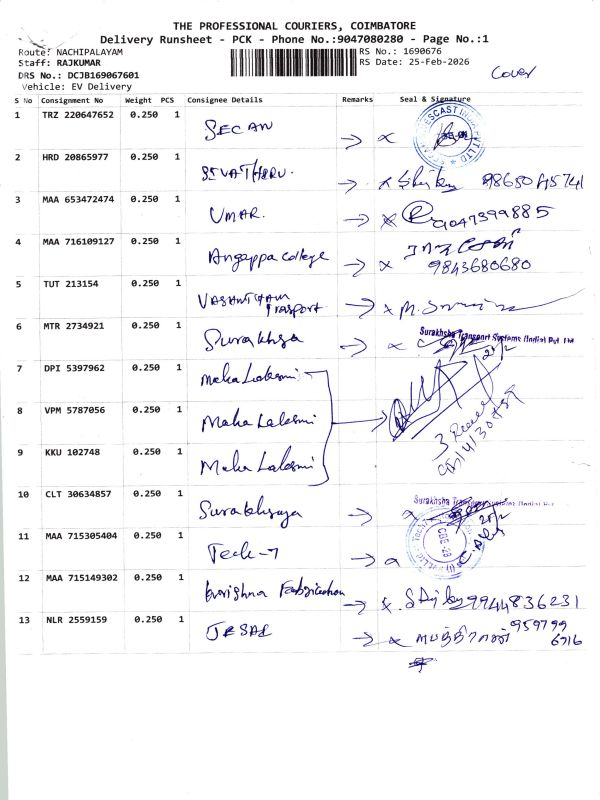 THE PROFESSIONAL COURIERS, COIMBATORE
Delivery Runsheet - PCK - Phone No.:9047080280 - Page No.:1
Route: NACHIPALAYAM RS No.: 1690676
Staff: RAJKUMAR RS Date: 25-Feb-2026
DRS No.: DCJB169067601 Cover
Vehicle: EV Delivery
S No Consignment No Weight PCS Consignee Details Remarks Seal & Signature
1 TRZ 220647652 0.250 1 SECAN
2 HRD 20865977 0.250 1
3 MAA 653472474 0.250 1 UMAR. 9047399885
4 MAA 716109127 0.250 1 Angappa College
9843680680
5 TUT 213154 0.250 1 VASANTHAM
Trasport
6 MTR 2734921 0.250 1 Surakhsa Surakhsha Transport Systems (India) Pvt Ltd
25/2
7 DPI 5397962 0.250 1 Maha Laksmi
8 VPM 5787056 0.250 1 Maha Laksmi
9 KKU 102748 0.250 1 Maha Laksmi
10 CLT 30634857 0.250 1 Surakhsya Surakhsha Transport Systems (India) Pvt
25/2
11 MAA 715305404 0.250 1 Tech-7
12 MAA 715149302 0.250 1 Krrishna Fabrication 9944836231
13 NLR 2559159 0.250 1 959799
6716